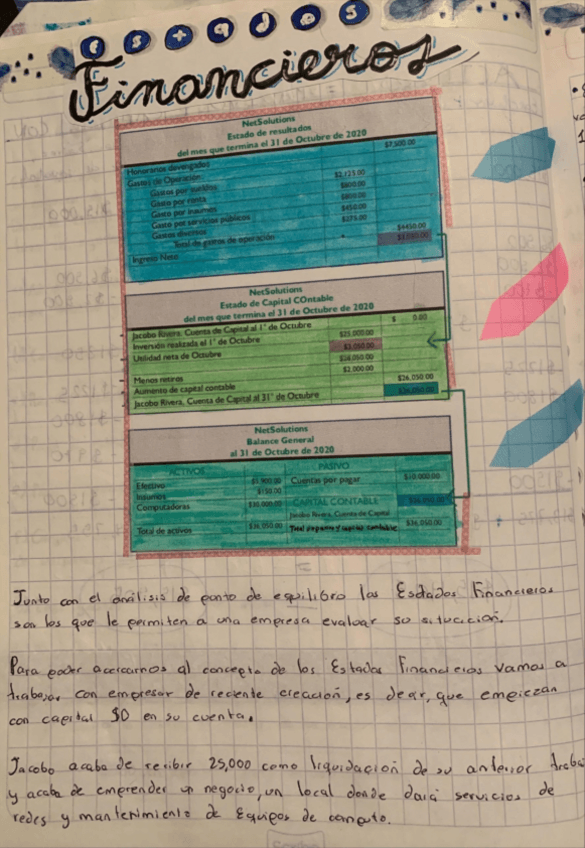 Estados
Financieros
NetSolutions
Estado de resultados
del mes que termina el 31 de Octubre de 2020
Honorarios devengados $7,500.00
Gastos de Operación
Gastos por sueldos $2,125.00
Gasto por renta $800.00
Gasto por insumos $800.00
Gasto por servicios públicos $450.00
Gastos diversos $275.00
Total de gastos de operación $4450.00
Ingreso Neto $3,050.00
NetSolutions
Estado de Capital COntable
del mes que termina el 31 de Octubre de 2020
Jacobo Rivera, Cuenta de Capital al 1° de Octubre $ 0.00
Inversión realizada el 1° de Octubre $25,000.00
Utilidad neta de Octubre $3,050.00
$28,050.00
Menos retiros $2,000.00
Aumento de capital contable $26,050.00
Jacobo Rivera, Cuenta de Capital al 31° de Octubre $26,050.00
NetSolutions
Balance General
al 31 de Octubre de 2020
ACTIVOS PASIVO
Efectivo Cuentas por pagar $10,000.00
Insumos $150.00
Computadoras CAPITAL CONTABLE $26,050.00
Jacobo Rivera, Cuenta de Capital
Total de activos $36,050.00 Total de pasivo y capital contable $36,050.00
Junto con el análisis de punto de equilibro los Estados Financieros
son los que le permiten a una empresa evaluar su situcición.
Para poder acercarnos al concepto de los Estados Financieros vamos a
trabajar con empresas de reciente creación, es decir, que empiezan
con capital $0 en su cuenta.
Jacobo acaba de recibir 25,000 como liquidación de su anterior traba
y acaba de emprender un negocio, un local donde dará servicios de
redes y mantenimiento de Equipos de computo.
Scribe